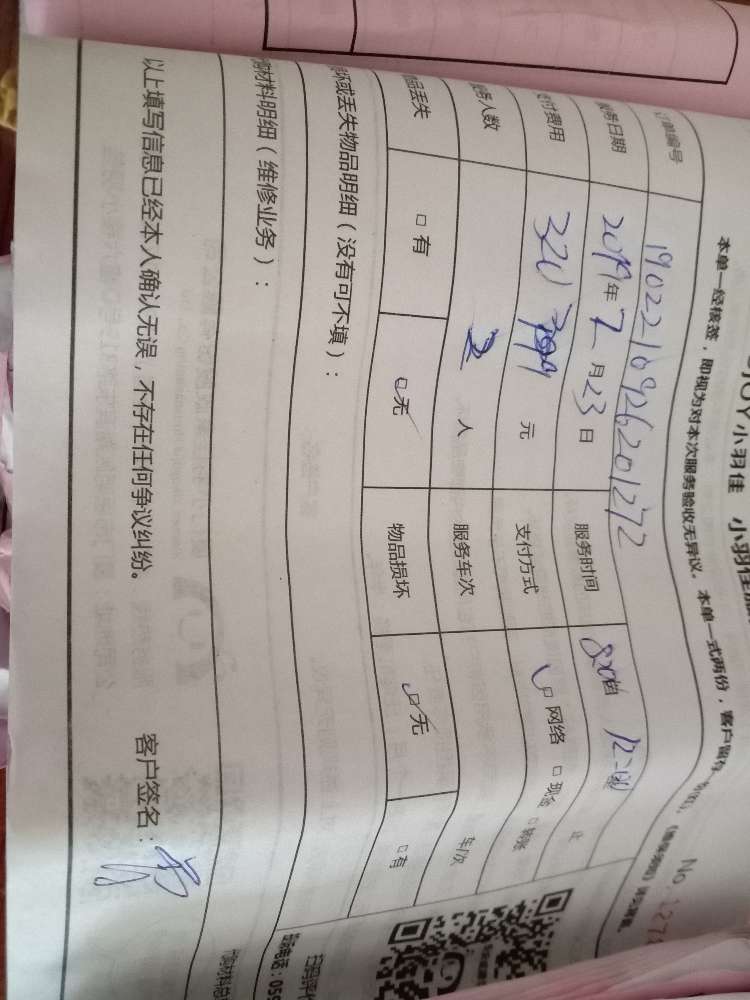 JOY小羽佳 小羽佳
No.
本单一经核签，即视为对本次服务验收无异议。本单一式两份，客户留存
订单编号 1902210926201272
服务日期 2019年2月23日 服务时间 止
支付费用 320 元 支付方式 □网络 □现金 □转账
服务人数 2 人 服务车次 车/次
物品丢失 □有 □无 物品损坏 □无 □有
损坏或丢失物品明细（没有可不填）：
材料明细（维修业务）：
以上填写信息已经本人确认无误，不存在任何争议纠纷。 客户签名：